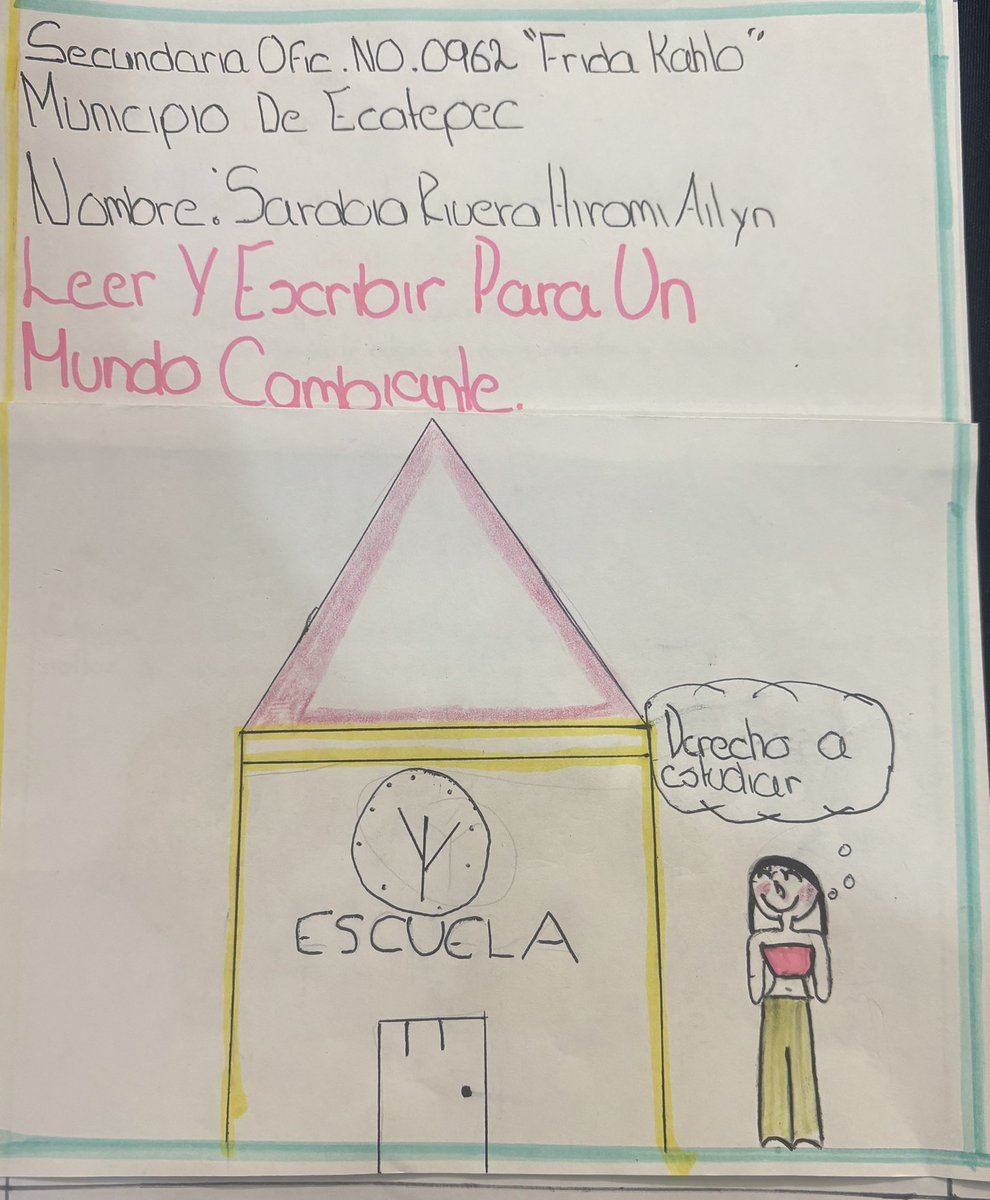 Secundaria Ofic. NO. 0962 "Frida Kahlo"
Municipio De Ecatepec
Nombre: Sarabia Rivera Hiromi Ailyn
Leer Y Escribir Para Un
Mundo Cambiante.
Derecho a
estudiar
ESCUELA